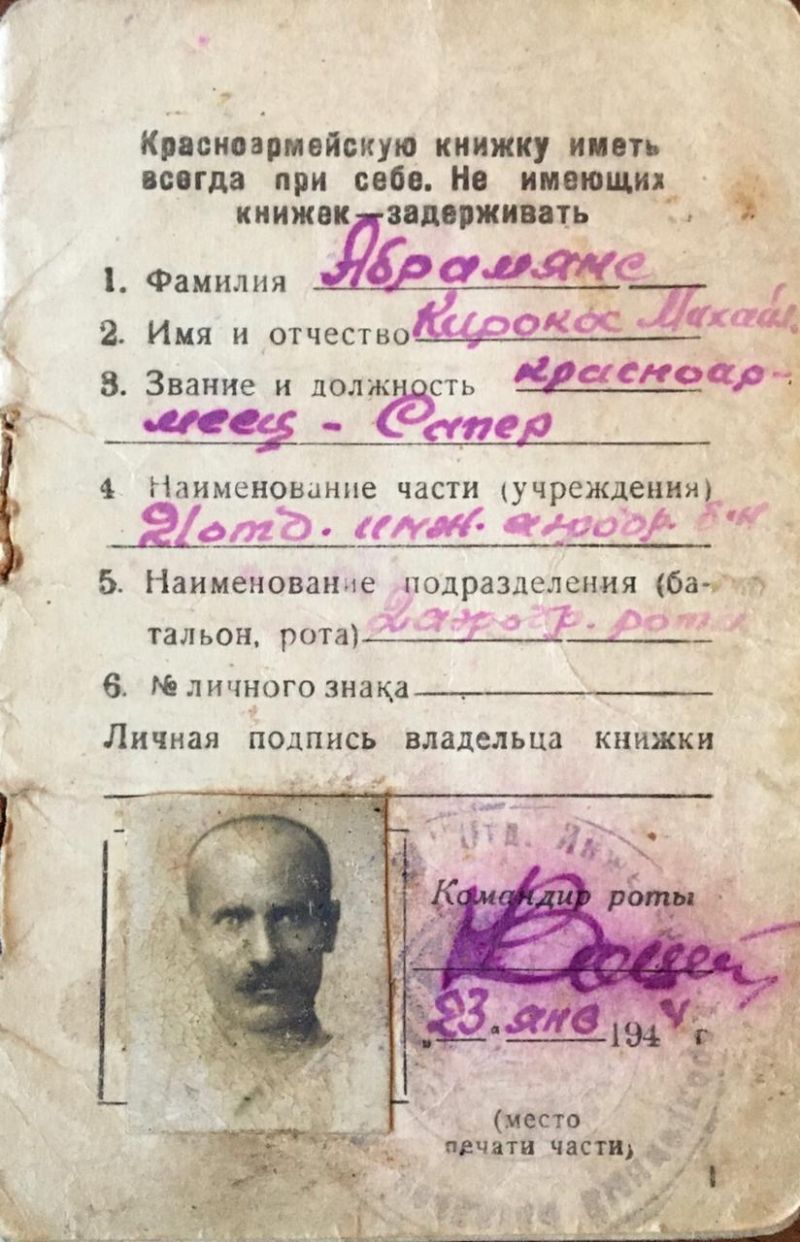 Красноармейскую книжку иметь
всегда при себе. Не имеющих
книжек—задерживать
1. Фамилия Абрамянс
2. Имя и отчество Кирокос Михайл.
3. Звание и должность красноар-
меец - Сапер
4 Наименование части (учреждения)
21 отд. инж. аэродр. б-н
5. Наименование подразделения (ба-
тальон, рота) 2 аэродр. рота
6. № личного знака
Личная подпись владельца книжки
Отд. Инже
Командир роты
„23" янв 1944 г
(место
печати части)
1